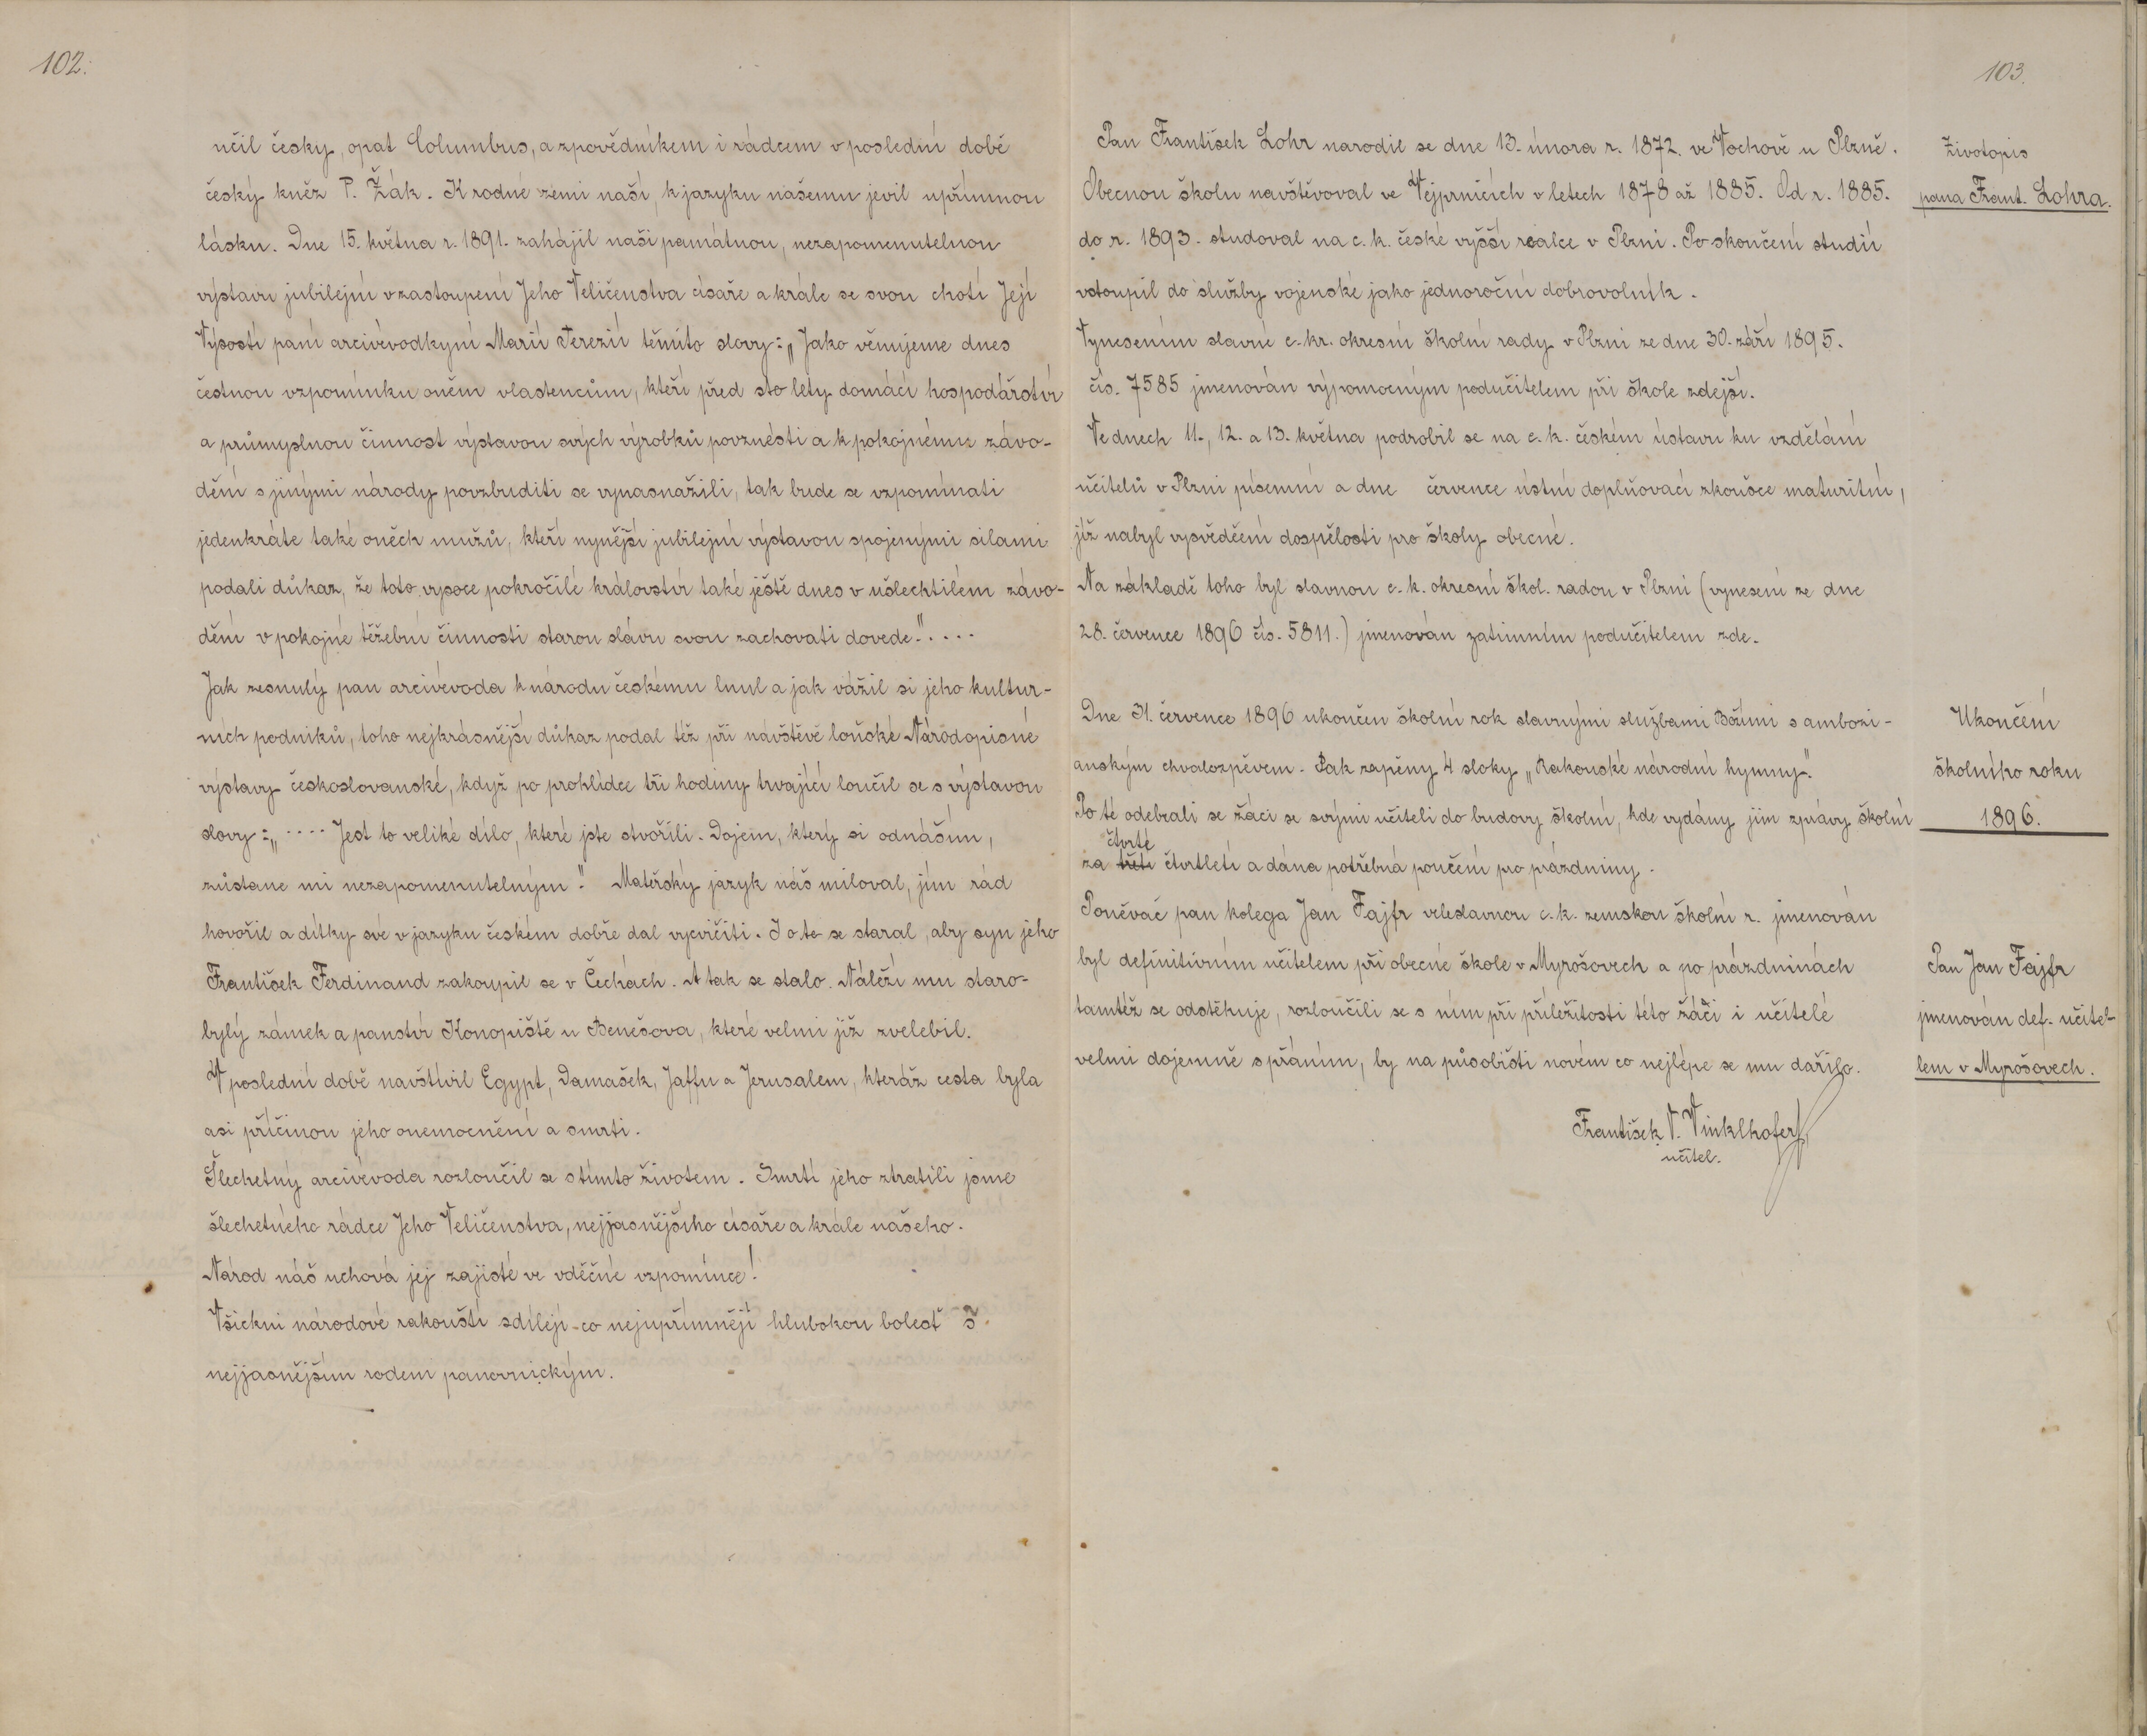 102.
učil česky, opat Columbus, a zpovědníkem i rádcem v poslední době
český kněz P. Žák. K rodné zemi naší, k jazyku našemu jevil upřímnou
lásku. Dne 15. května r. 1891. zahájil naši památnou, nezapomenutelnou
výstavu jubilejní v zastoupení Jeho Veličenstva císaře a krále se svou chotí Její
Výsostí paní arcivévodkyní Marií Terezií těmito slovy: „Jako věnujeme dnes
čestnou vzpomínku oněm vlastencům, kteří před sto lety domácí hospodářství
a průmyslnou činnost výstavou svých výrobků povznésti a k pokojnému závo-
dění s jinými národy povzbuditi se vynasnažili, tak bude se vzpomínati
jedenkráte také oněch mužů, kteří nynější jubilejní výstavou spojenými silami
podali důkaz, že toto vysoce pokročilé království také ještě dnes v ušlechtilém závo-
dění v pokojné těžební činnosti starou slávu svou zachovati dovede.". . . .
Jak zesnulý pan arcivévoda k národu českému lnul a jak vážil si jeho kultur-
ních podniků, toho nejkrásnější důkaz podal též při návštěvě loňské Národopisné
výstavy českoslovanské, když po prohlídce tři hodiny trvající loučil se s výstavou
slovy: „ . . . . Jest to veliké dílo, které jste stvořili. Dojem, který si odnáším,
zůstane mi nezapomenutelným." Mateřský jazyk náš miloval, jím rád
hovořil a dítky své v jazyku českém dobře dal vycvičiti. I o to se staral, aby syn jeho
František Ferdinand zakoupil se v Čechách. A tak se stalo. Náleží mu staro-
bylý zámek a panství Konopiště u Benešova, které velmi již zvelebil.
V poslední době navštívil Egypt, Damašek, Jaffu a Jerusalem, kteráž cesta byla
asi příčinou jeho onemocnění a smrti.
Šlechetný arcivévoda rozloučil se s tímto životem. Smrtí jeho ztratili jsme
šlechetného rádce Jeho Veličenstva, nejjasnějšího císaře a krále našeho.
Národ náš uchová jej zajisté ve vděčné vzpomínce!
Všickni národové rakouští sdílejí co nejupřímněji hlubokou bolesť s
nejjasnějším rodem panovnickým.
103.
Pan František Lohr narodil se dne 13. února r. 1872. ve Vochově u Plzně.
Obecnou školu navštěvoval ve Vejprnicích v letech 1878 až 1885. Od r. 1885.
do r. 1893. studoval na c. k. české vyšší realce v Plzni. Po skončení studií
vstoupil do služby vojenské jako jednoroční dobrovolník.
Vynesením slavné c. kr. okresní školní rady v Plzni ze dne 30. září 1895.
čís. 7585 jmenován výpomocným podučitelem při škole zdejší.
Ve dnech 11., 12. a 13. května podrobil se na c. k. českém ústavu ku vzdělání
učitelů v Plzni písemní a dne července ústní doplňovací zkoušce maturitní,
jíž nabyl vysvědčení dospělosti pro školy obecné.
Na základě toho byl slavnou c. k. okresní škol. radou v Plzni (vynesení ze dne
28. července 1896 čís. 5811.) jmenován zatimním podučitelem zde.
Životopis
pana Frant. Lohra.
Dne 31. července 1896 ukončen školní rok slavnými službami Božími s ambozi-
anským chvalozpěvem. Pak zapěny 4 sloky „Rakouské národní hymny."
Po té odebrali se žáci se svými učiteli do budovy školní, kde vydány jim zprávy školní
čtvrté
za třetí čtvrtletí a dána potřebná poučení pro prázdniny.
Ukončení
školního roku
1896.
Poněvač pan kolega Jan Fajfr veleslavnou c. k. zemskou školní r. jmenován
byl definitivním učitelem při obecné škole v Myrošovech a po prázdninách
tamtéž se odstěhuje, rozloučili se s ním při příležitosti této žáci i učitelé
velmi dojemně s přáním, by na působišti novém co nejlépe se mu dařilo.
Pan Jan Fajfr
jmenován def. učitel-
lem v Myrošovech.
František V. Vinklhofer,
učitel.